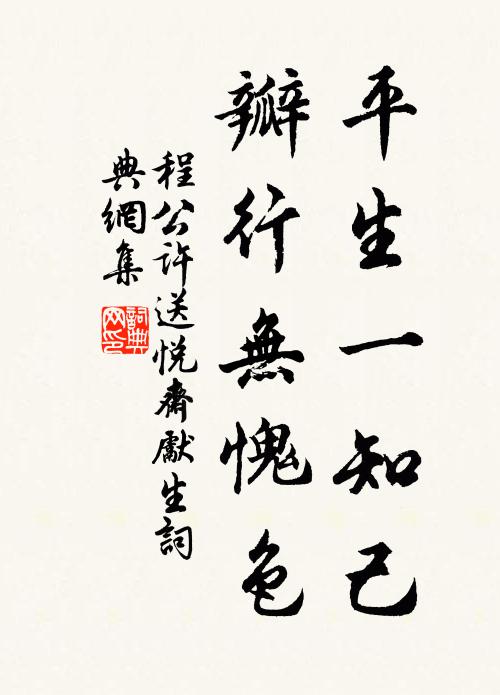 平生一知己
瓣行無愧色
程公許送悅齋獻生詞
典網集
詞典網印